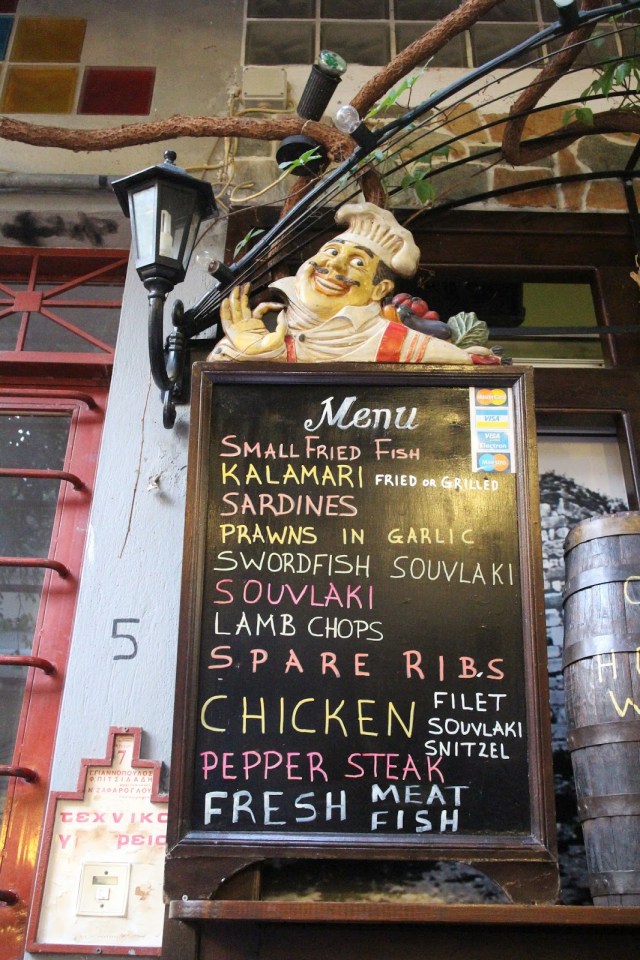 Menu
MasterCard
VISA
VISA
Electron
Maestro
SMALL FRIED FISH
KALAMARI FRIED OR GRILLED
SARDINES
PRAWNS IN GARLIC
SWORDFISH SOUVLAKI
SOUVLAKI
LAMB CHOPS
SPARE RIBS
CHICKEN FILET
SOUVLAKI
SNITZEL
PEPPER STEAK
FRESH MEAT
FISH
5
7
ΣΓΙΑΝΝΟΠΟΥΛΟΣ
ΤΕΧΝΙΚΟ